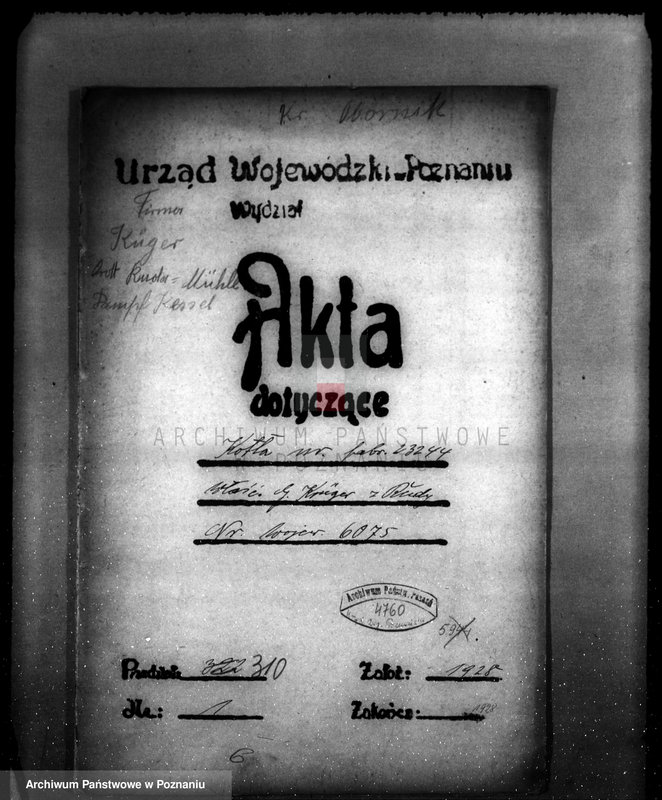 Kr. Obornik
Urząd Wojewódzki-Poznaniu
Wydział
Firma
Krüger
Ruda-Mühle
Dampf Kessel
Akta
dotyczące
ARCHIWUM PAŃSTWOWE
Kotła nr. fabr. 23244
właśc. G. Krüger z Rudy
Nr wojew. 6075
Archiwum Państw. Poznań
4760
Urząd Woj. Poznański
322 310
Założ: 1928
Nr.: 1
Zakończ: 1928
6
Archiwum Państwowe w Poznaniu